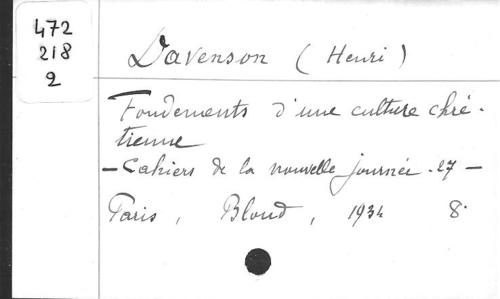 472
218
2
Davenson (Henri)
Fondements d'une culture chré-
tienne
- Cahiers de la nouvelle journée. 27 -
Paris, Bloud, 1934 8°